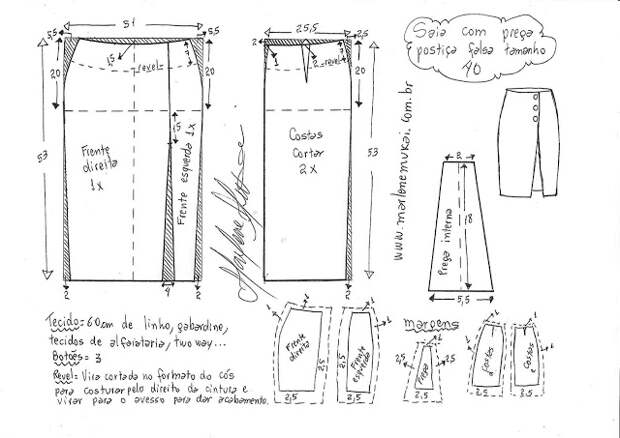 Saia com prega
postiça falsa tamanho
40
51
5,5
2,5
15
revel
7
20
53
15
Frente
direita
1x
Frente esquerda 1x
2
4
2
25,5
2
2,5
1
2
revel
7
20
53
Costas
Cortar
2x
2
www.marlenemukai.com.br
8
18
Prega interna
5,5
Tecido= 60cm de linho, gabardine,
tecidos de alfaiataria, two way...
Botões= 3
Revel= Vira cortada no formato do cós
para costurar pelo direito da cintura e
virar para o avesso para dar acabamento.
margens
1
1
Frente
direita
2,5
2,5
1
1
Frente
esquerda
2,5
2,5
1
2,5
2,5
Prega
2,5
1
1
Costas
d
2,5
1
1
Costas
e
2,5